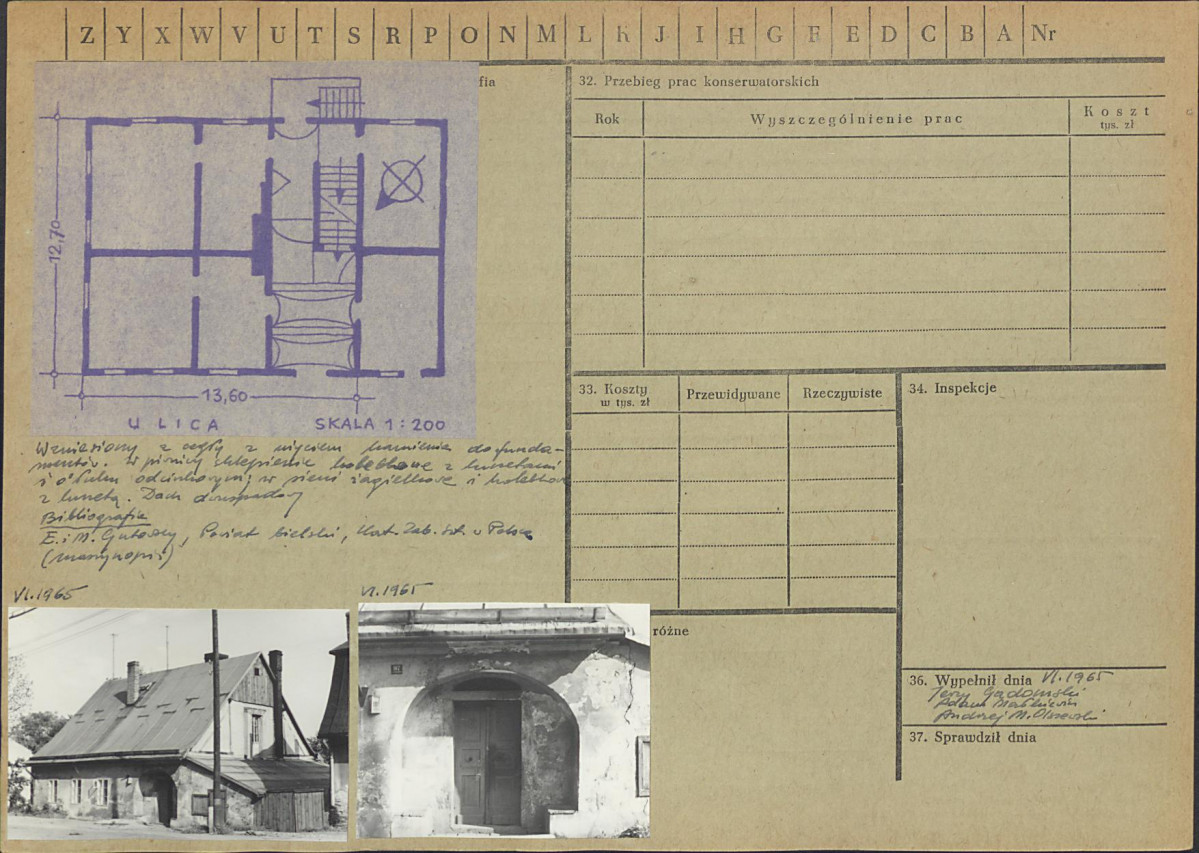 Z Y X W V U T S R P O N M L K J I H G F E D C B A Nr
fia
12,70
13,60
ULICA SKALA 1:200
Wzniesiony z cegły z użyciem kamienia do funda-
mentów. W piwnicy sklepienie kolebkowe z lunetami
i o łuku odcinkowym; w sieni żagielkowe i kolebkowe
z lunetą. Dach dwuspadowy
Bibliografia
E. i M. Gutowscy, Powiat bielski, Kat. Zab. Szt. w Polsce
(maszynopis)
VI.1965
VI.1965
32. Przebieg prac konserwatorskich
Rok Wyszczególnienie prac Koszt
tys. zł
33. Koszty
w tys. zł
Przewidywane Rzeczywiste
34. Inspekcje
różne
36. Wypełnił dnia VI.1965
Jerzy Gadomski
Adam
Andrzej M. Olszewski
37. Sprawdził dnia